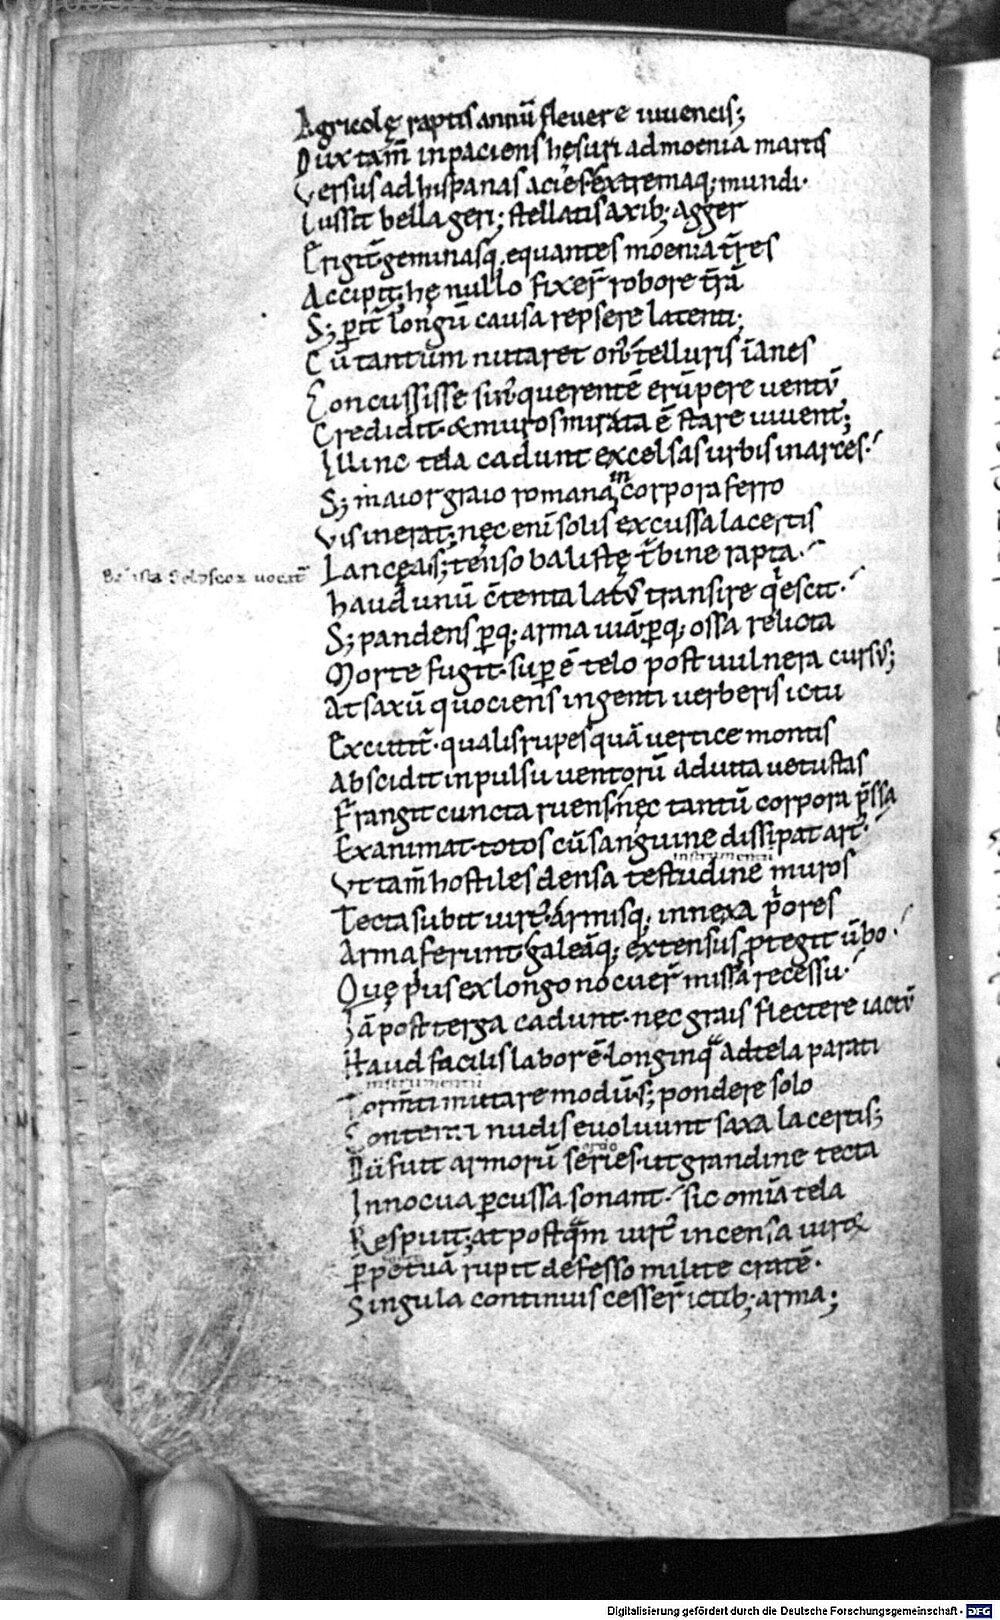 Agricolę raptis annū fleuere iuuencis;
Dux tam̄ inpaciens hęsuri ad moenia martis
Versus ad hispanas acies extremaq; mundi·
Iussit bella geri; stellatis axib; agger
Erigit̄ geminasq; equantes moenia tr̄res
Accipit; hę nullo fixer̄ robore tr̄ā
S; p̄ it̄ longū causa repsere latenti;
Cū tantum nutaret on̄ telluris īanes
Concussisse sin̄ querentē erūpere uentū
Credidit· & muros mirata ē stare iuuent;
Illinc tela cadunt excelsas urbis in arces·
S; maior graio romana in corpora ferro
Vis inerat; nęc eni solis excussa lacertis
Lancęa· s; tenso balistę t̄bine rapta·
Balista
haud unū c̄tenta latꝰ transire q̄escit·
S; pandens p̄q; arma uiā p̄q; ossa relicta
Morte fugit· sup̄ ē telo post uulnera cursꝰ;
At saxū quociens ingenti uerberis ictu
Excutit̄· qualis rupes quā uertice montis
Abscidit inpulsu uentorū adiuta uetustas
Frangit cuncta ruens· nęc tantū corpora p̄ssa
Exanimat· totos cū sanguine dissipat art̄·
instrumenti
Vt tam̄ hostiles densa testudine muros
Tecta subit uirt̄· armisq; innexa p̄ores
Arma ferunt· galeāq; extensus p̄tegit ūbo·
Quę p̄us ex longo nocuer̄ missa recessu·
Iā post terga cadunt· nęc grais flectere iactū
Haud facilis labor ē· longinq ad tela parati
instrumenti
Torm̄ti mutare modū· s; pondere solo
Contenti nudis euoluunt saxa lacertis;
ordo
Dū fuit armorū series· ut grandine tecta
Innocua p̄cussa sonant· sic om̄ia tela
Respuit; at postq̄m uirt̄ incensa uirorꝝ
P̄petuā rupit defesso milite cratē·
Singula continuis cesser̄ ictib; arma;
Digitalisierung gefördert durch die Deutsche Forschungsgemeinschaft - DFG